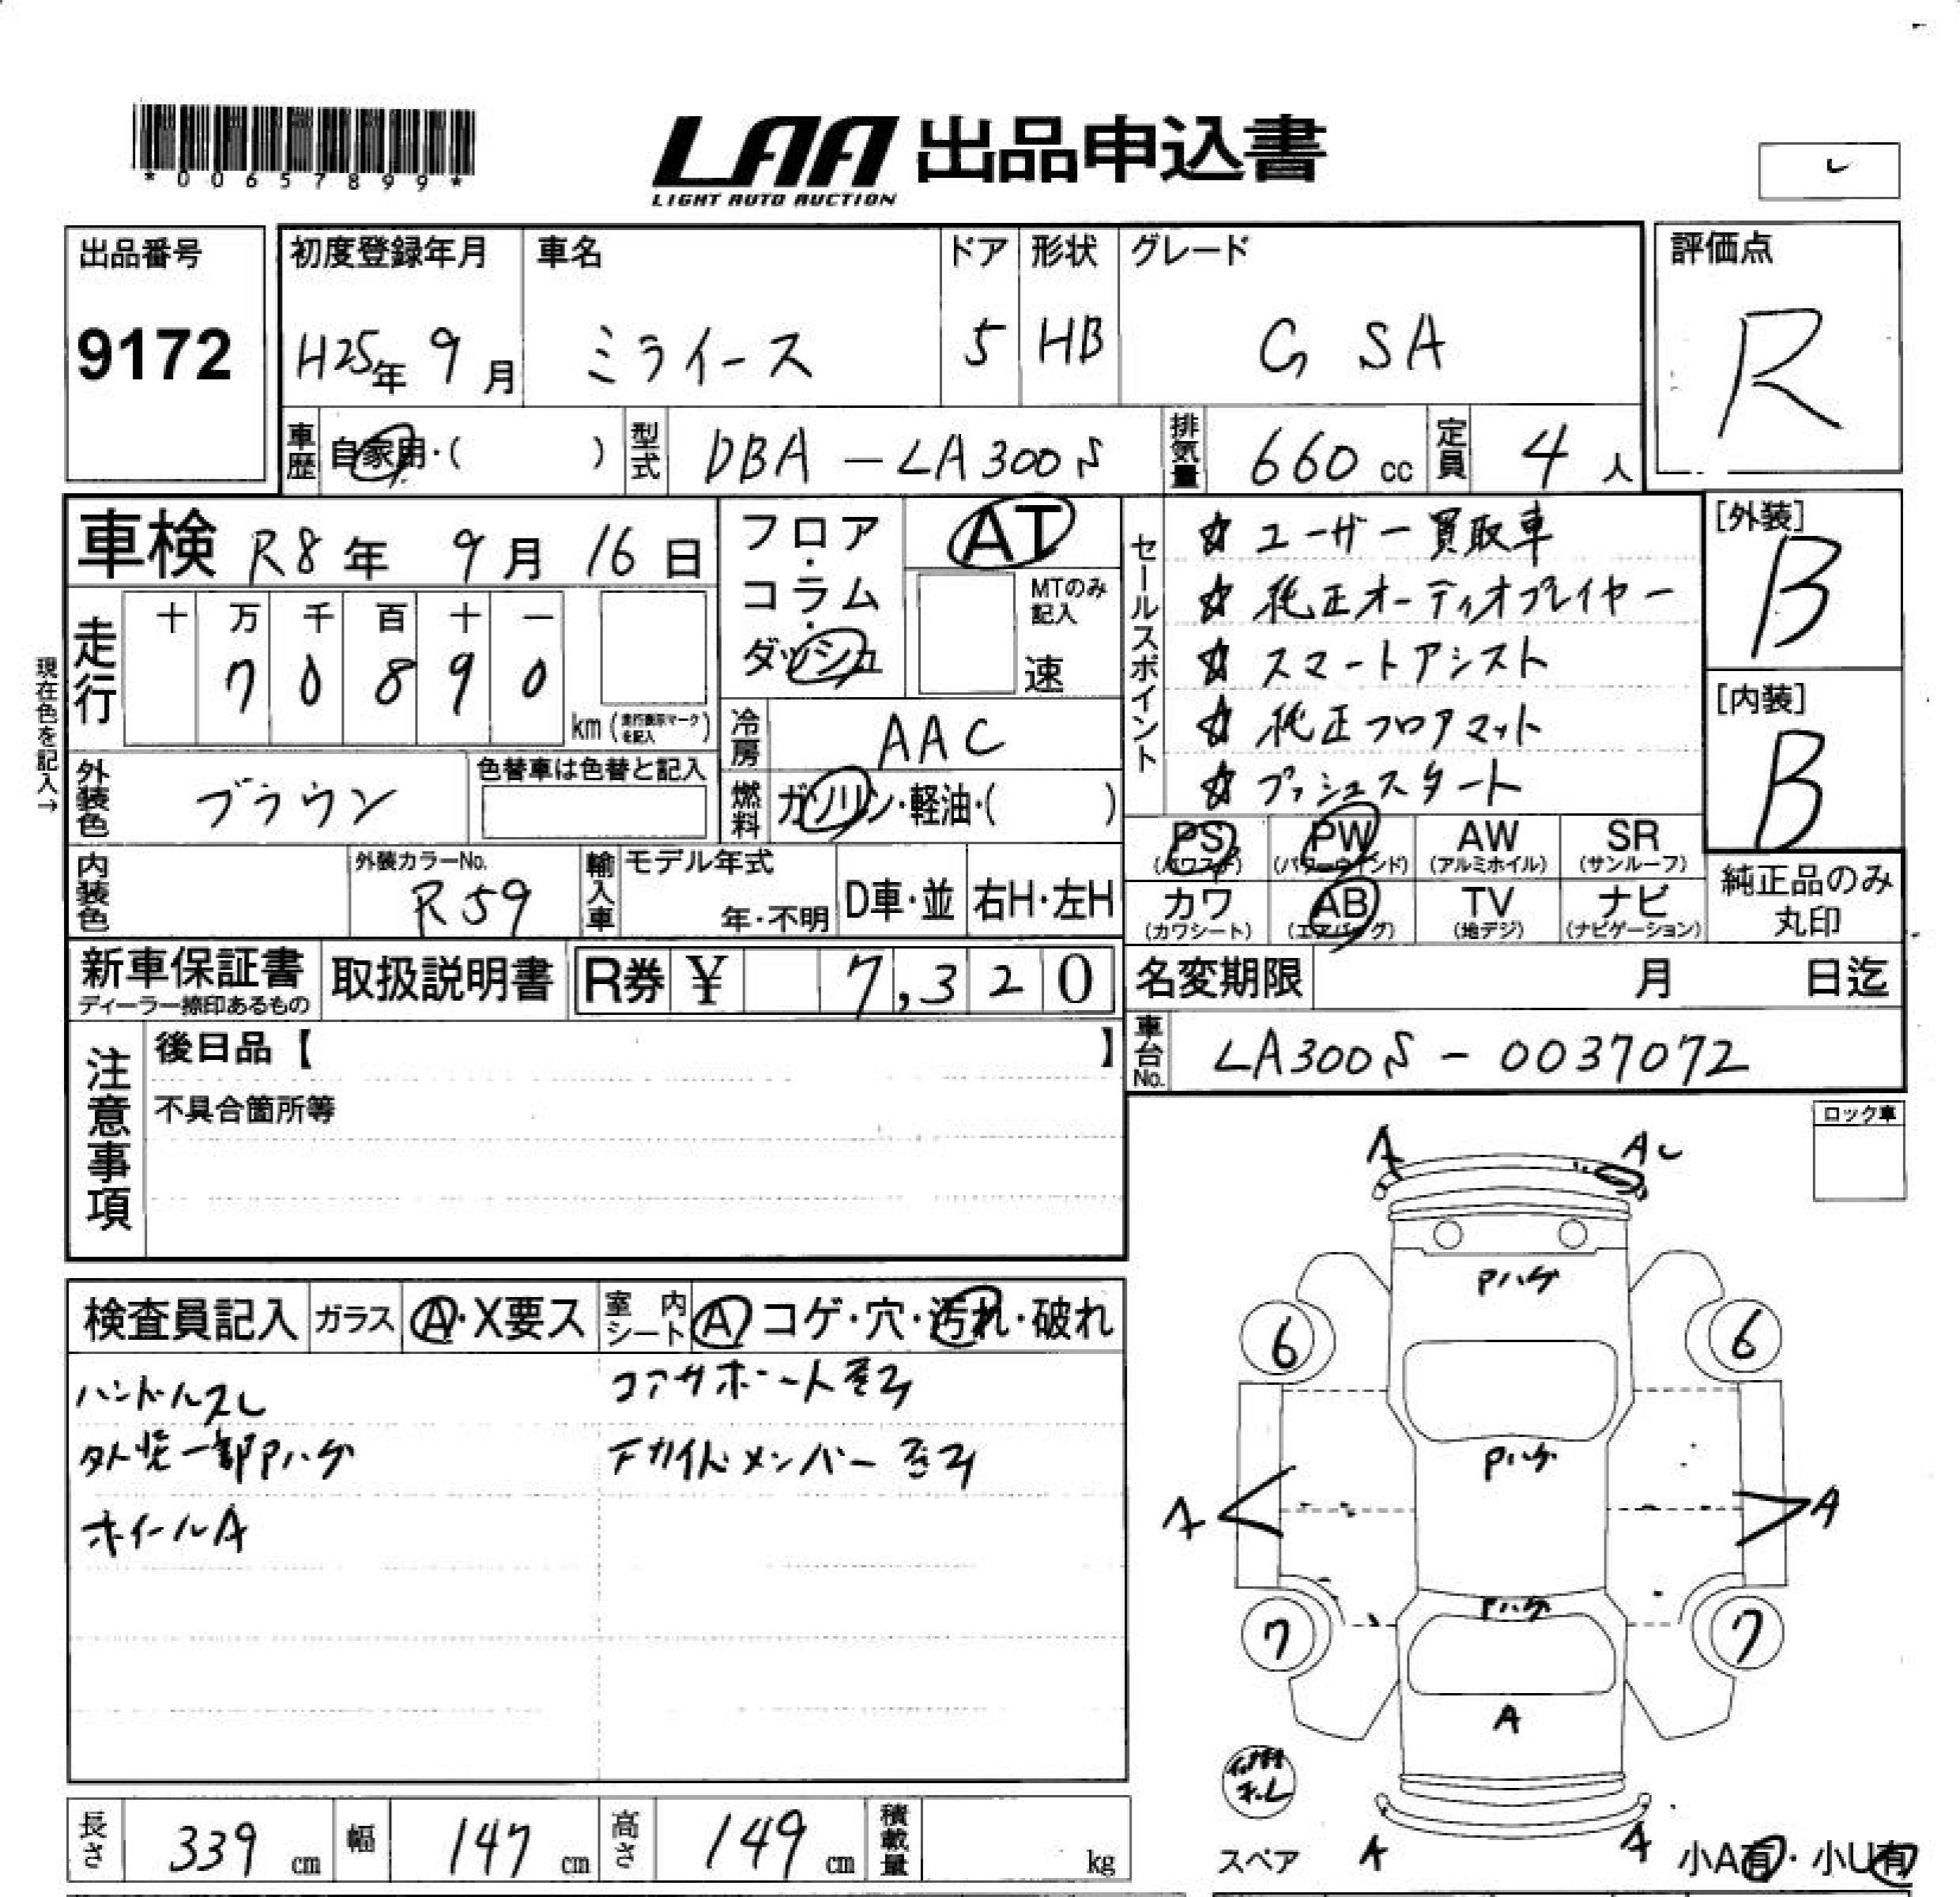 *00657899*
LAA 出品申込書
LIGHT AUTO AUCTION
出品番号
9172
初度登録年月
H25年 9月
車名
ミライース
ドア
5
形状
HB
グレード
G SA
評価点
R
車歴
自家用・( )
型式
DBA-LA300S
排気量
660 cc
定員
4 人
車検 R8年 9月 16日
フロア・コラム・ダッシュ
AT
MTのみ記入
速
走行
十 万 千 百 十 一
7 0 8 9 0
km (走行表示マークを記入)
現在色を記入→
冷房
AAC
外装色
ブラウン
色替車は色替と記入
燃料
ガソリン・軽油・( )
内装色
外装カラーNo.
R59
輸入車
モデル年式
年・不明
D車・並
右H・左H
セールスポイント
☆ ユーザー買取車
☆ 純正オーディオプレイヤー
☆ スマートアシスト
☆ 純正フロアマット
☆ プッシュスタート
[外装]
B
[内装]
B
PS (パワステ)
PW (パワーウインド)
AW (アルミホイル)
SR (サンルーフ)
カワ (カワシート)
AB (エアバッグ)
TV (地デジ)
ナビ (ナビゲーション)
純正品のみ丸印
新車保証書
ディーラー捺印あるもの
取扱説明書
R券 ¥ 7,320
名変期限 月 日迄
車台No.
LA300S-0037072
注意事項
後日品【 】
不具合箇所等
ロック車
検査員記入
ガラス
A・X要ス
室内シート
A コゲ・穴・汚れ・破れ
ハンドルスレ
外装一部Pハゲ
ホイールA
コアサポート歪み
下サイドメンバー歪み
A
A
Pハゲ
6
6
Pハゲ
A
A
Pハゲ
7
7
A
スペア
A
A
小A有・小U有
長さ
339 cm
幅
147 cm
高さ
149 cm
積載量
kg